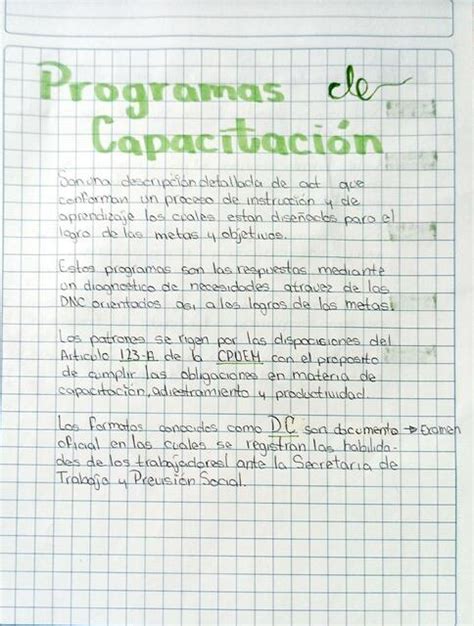 Programas de
Capacitación
Son una descripción detallada de act que
conforman un proceso de instrucción y de
aprendizaje los cuales estan diseñados para el
logro de las metas y objetivos.
Estos programas son las respuestas mediante
un diagnostico de necesidades atravez de las
DNC orientados asi a los logros de las metas.
Los patrones se rigen por las dispocisiones del
Articulo 123-A de la CPUEM con el proposito
de cumplir las obligaciones en materia de
capacitación, adiestramiento y productividad.
Los formatos conocidos como DC son documento → Examen
oficial en las cuales se registran las habilida-
des de los trabajadores ante la Secretaria de
Trabajo y Prevision Social.